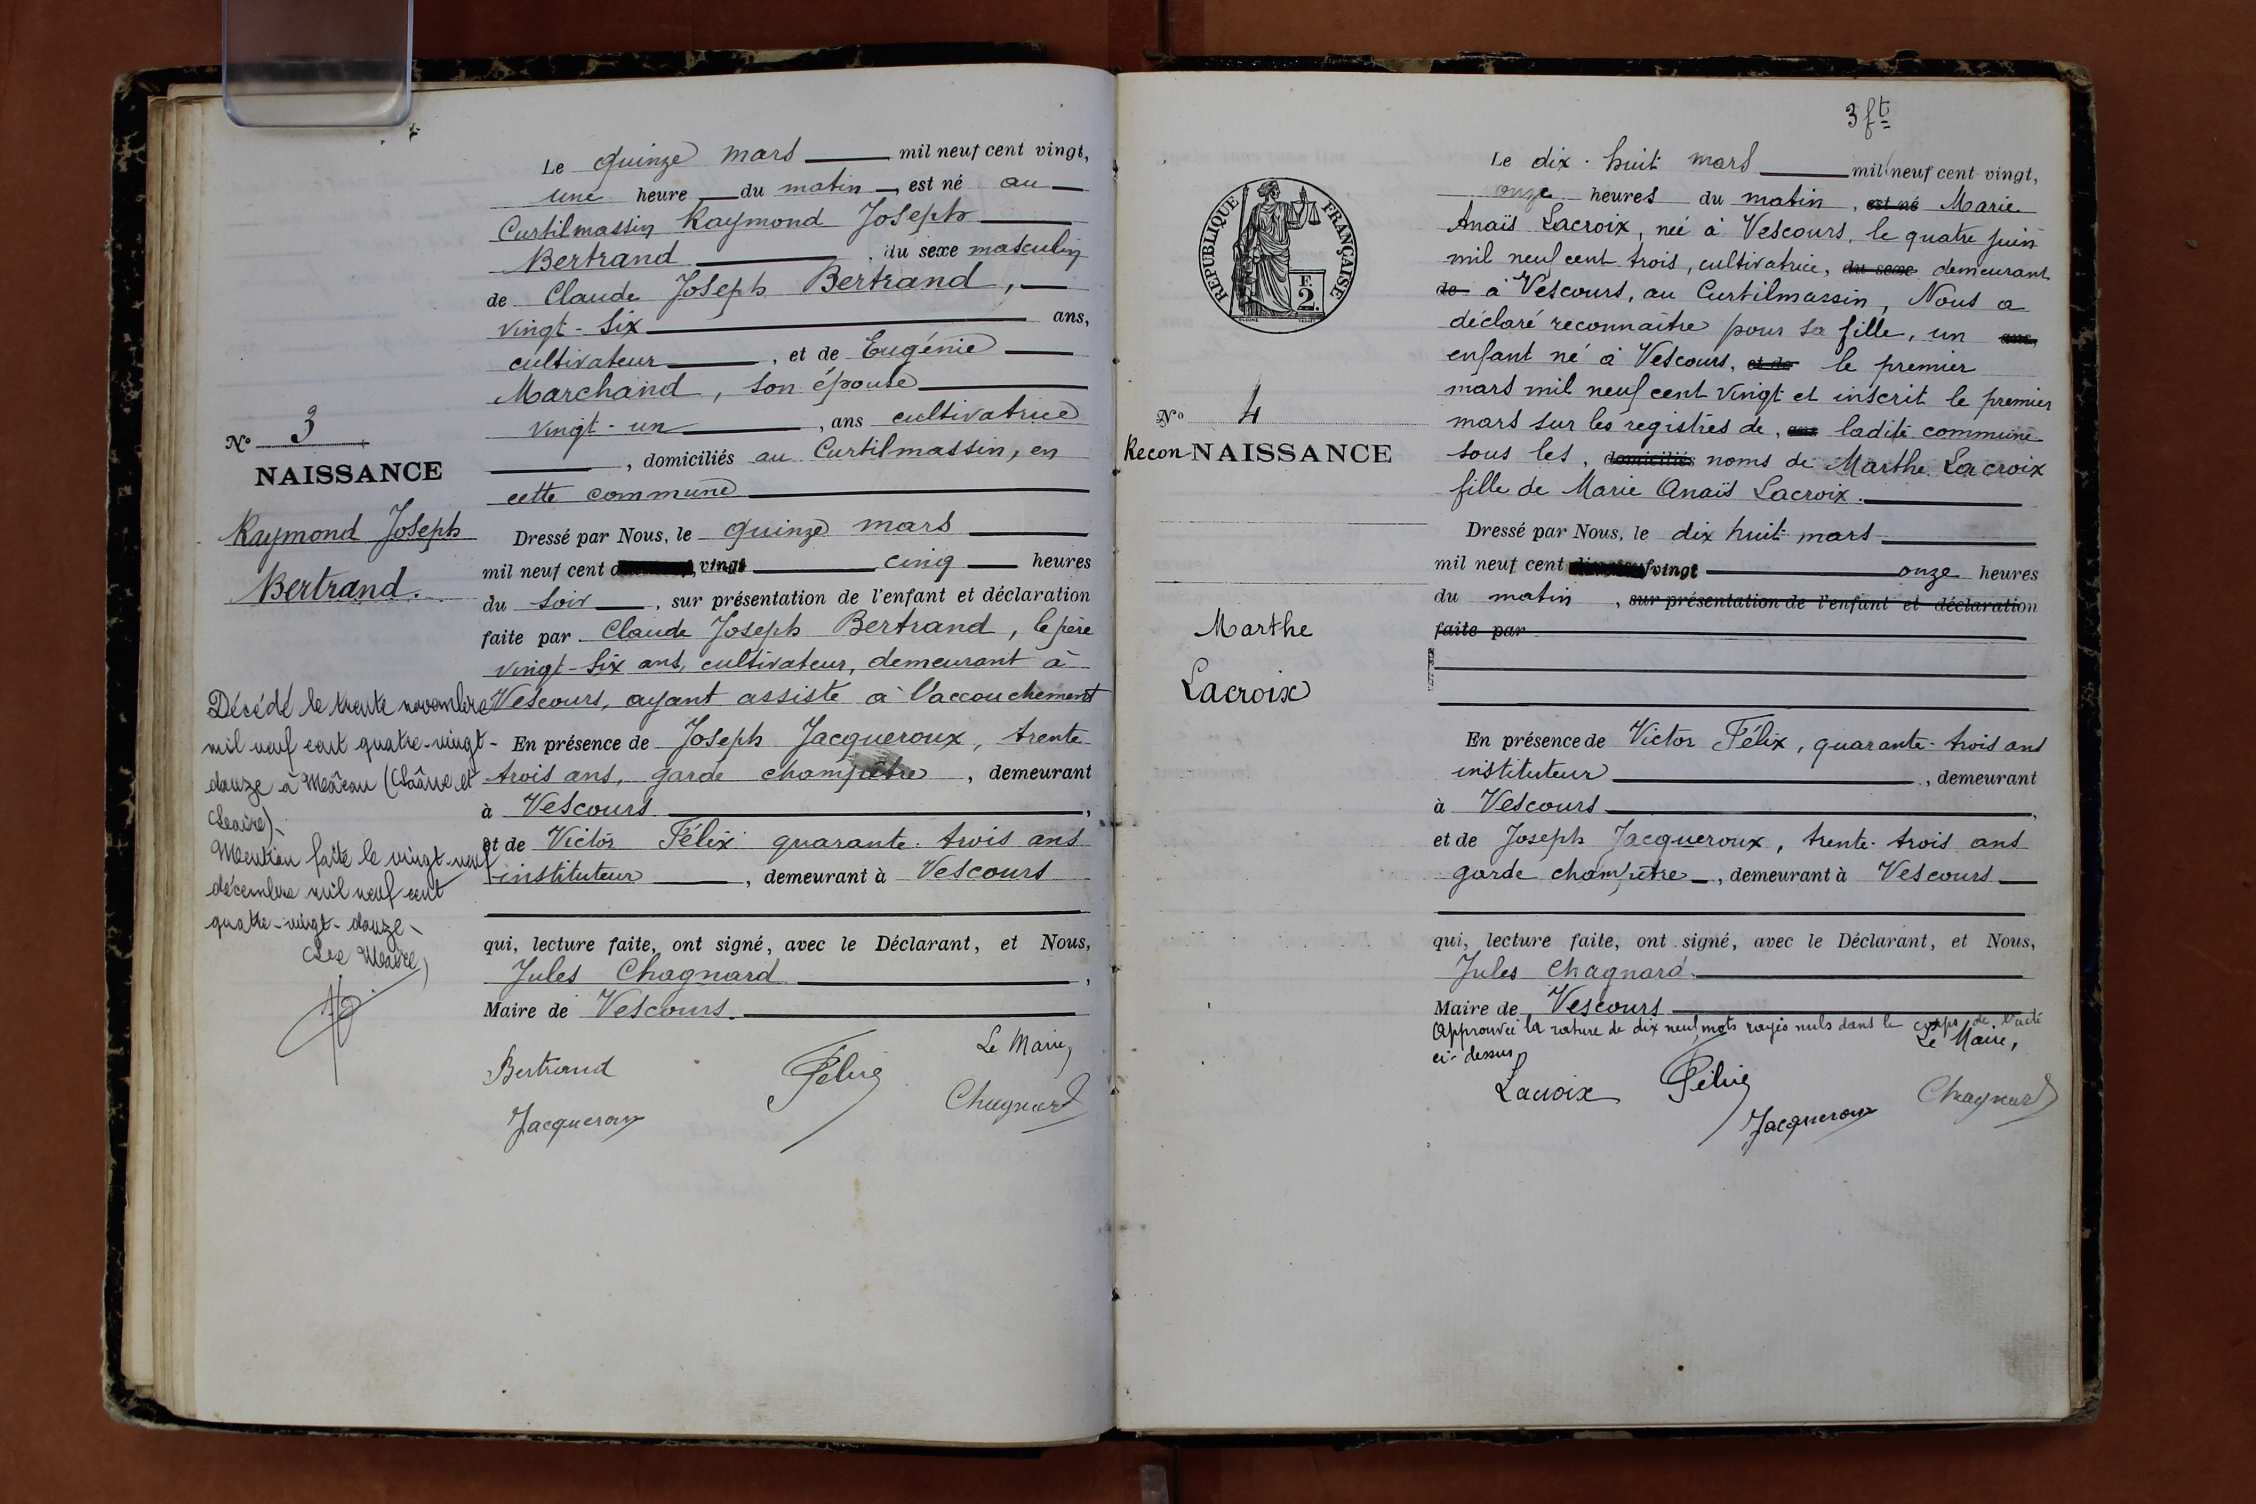 Le quinze mars mil neuf cent vingt,
une heure du matin, est né au
Curtilmassin Raymond Joseph
Bertrand, du sexe masculin
de Claude Joseph Bertrand,
vingt-six ans,
cultivateur, et de Eugénie
Marchand, son épouse
vingt-un, ans cultivatrice
, domiciliés au Curtilmassin, en
cette commune
Dressé par Nous, le quinze mars
mil neuf cent vingt cinq heures
du soir, sur présentation de l'enfant et déclaration
faite par Claude Joseph Bertrand, le père
vingt-six ans, cultivateur, demeurant à
Vescours, ayant assisté à l'accouchement
En présence de Joseph Jacqueroux, trente
trois ans, garde champêtre, demeurant
à Vescours,
et de Victor Félix quarante-trois ans
instituteur, demeurant à Vescours
qui, lecture faite, ont signé, avec le Déclarant, et Nous,
Jules Chagnard,
Maire de Vescours.
Le Maire,
Bertrand Félix Chagnard
Jacqueroux
N° 3
NAISSANCE
Raymond Joseph
Bertrand.
Décédé le trente novembre
mil neuf cent quatre-vingt-
douze à Mâcon (Saône et
Loire)-
Mention faite le vingt-neuf
décembre mil neuf cent
quatre-vingt-douze-
Le Maire,
3 ft
RÉPUBLIQUE FRANÇAISE
F.
2
N° 4
Recon NAISSANCE
Marthe
Lacroix
Le dix-huit mars mil neuf cent vingt,
onze heures du matin, est né Marie
Anaïs Lacroix, née à Vescours, le quatre juin
mil neuf cent trois, cultivatrice, du sexe demeurant
de à Vescours, au Curtilmassin, Nous a
déclaré reconnaître pour sa fille, un ans,
enfant né à Vescours, et de le premier
mars mil neuf cent vingt et inscrit le premier
mars sur les registres de, ans ladite commune
sous les, domiciliés noms de Marthe Lacroix
fille de Marie Anaïs Lacroix.
Dressé par Nous, le dix huit mars
mil neuf cent vingt onze heures
du matin, sur présentation de l'enfant et déclaration
faite par
En présence de Victor Félix, quarante-trois ans
instituteur, demeurant
à Vescours,
et de Joseph Jacqueroux, trente-trois ans
garde champêtre, demeurant à Vescours
qui, lecture faite, ont signé, avec le Déclarant, et Nous,
Jules Chagnard.
Maire de Vescours
Approuvée la rature de dix neuf mots rayés nuls dans le corps de l'acte
ci-dessus,
Le Maire,
Lacroix Félix Chagnard
Jacqueroux